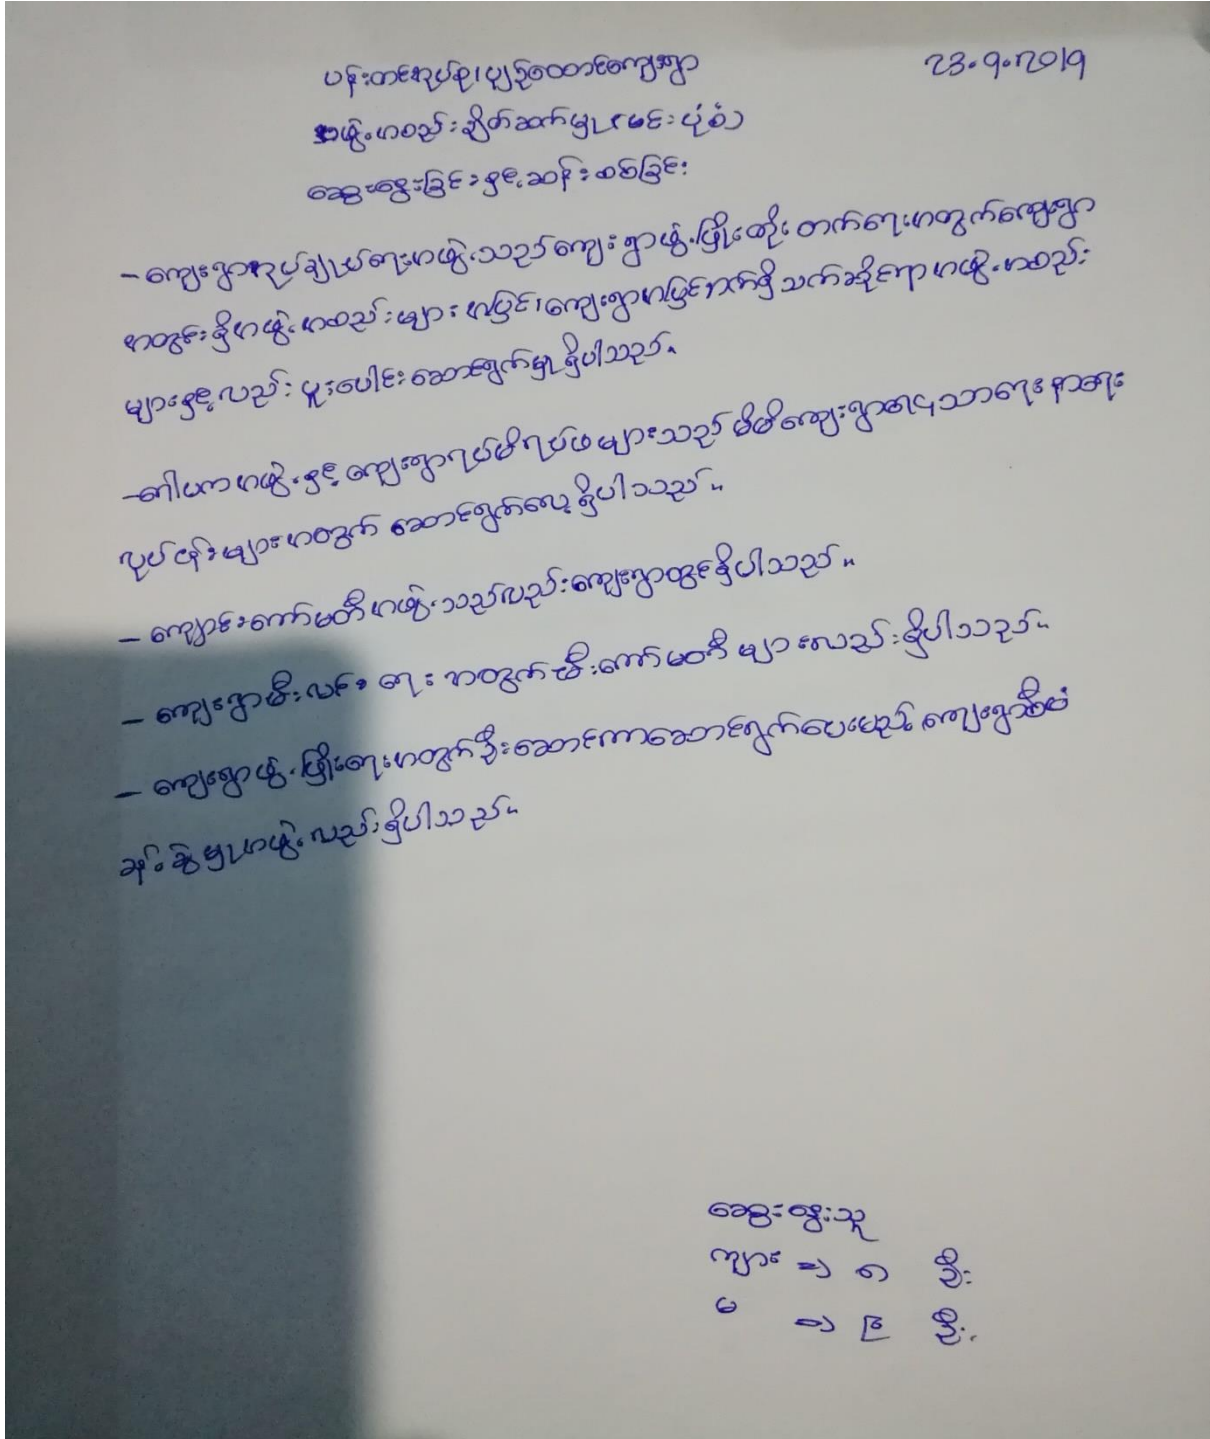 ပန်းတင်အုပ်စု၊ ပျဉ်ထောင်ကျေးရွာ
23.9.2019
အဖွဲ့အစည်းချိတ်ဆက်မှု (မင်းပုံစံ)
ဆွေးနွေးခြင်းနှင့်ဆန်းစစ်ခြင်း
– ကျေးရွာအုပ်ချုပ်ရေးအဖွဲ့သည် ကျေးရွာဖွံ့ဖြိုးတိုးတက်ရေးအတွက်ကျေးရွာ
အတွင်းရှိအဖွဲ့အစည်းများအပြင်၊ ကျေးရွာအပြင်ဘက်ရှိသက်ဆိုင်ရာအဖွဲ့အစည်း
များနှင့်လည်း ပူးပေါင်းဆောင်ရွက်မှုရှိပါသည်။
– ဂေါပကအဖွဲ့နှင့် ကျေးရွာရပ်မိရပ်ဖများသည် မိမိကျေးရွာရှိသာရေးနာရေး
လုပ်ငန်းများအတွက် ဆောင်ရွက်လေ့ရှိပါသည်။
– ကျောင်းကော်မတီအဖွဲ့သည်လည်းကျေးရွာတွင်ရှိပါသည်။
– ကျေးရွာမီးလင်းရေးအတွက် မီးကော်မတီများလည်းရှိပါသည်။
– ကျေးရွာဖွံ့ဖြိုးရေးအတွက်ဦးဆောင်ကာဆောင်ရွက်ပေးမည့် ကျေးရွာစီမံ
ခန့်ခွဲမှုအဖွဲ့လည်းရှိပါသည်။
ဆွေးနွေးသူ
ကျား ⇒ ၈ ဦး
မ ⇒ ဦး